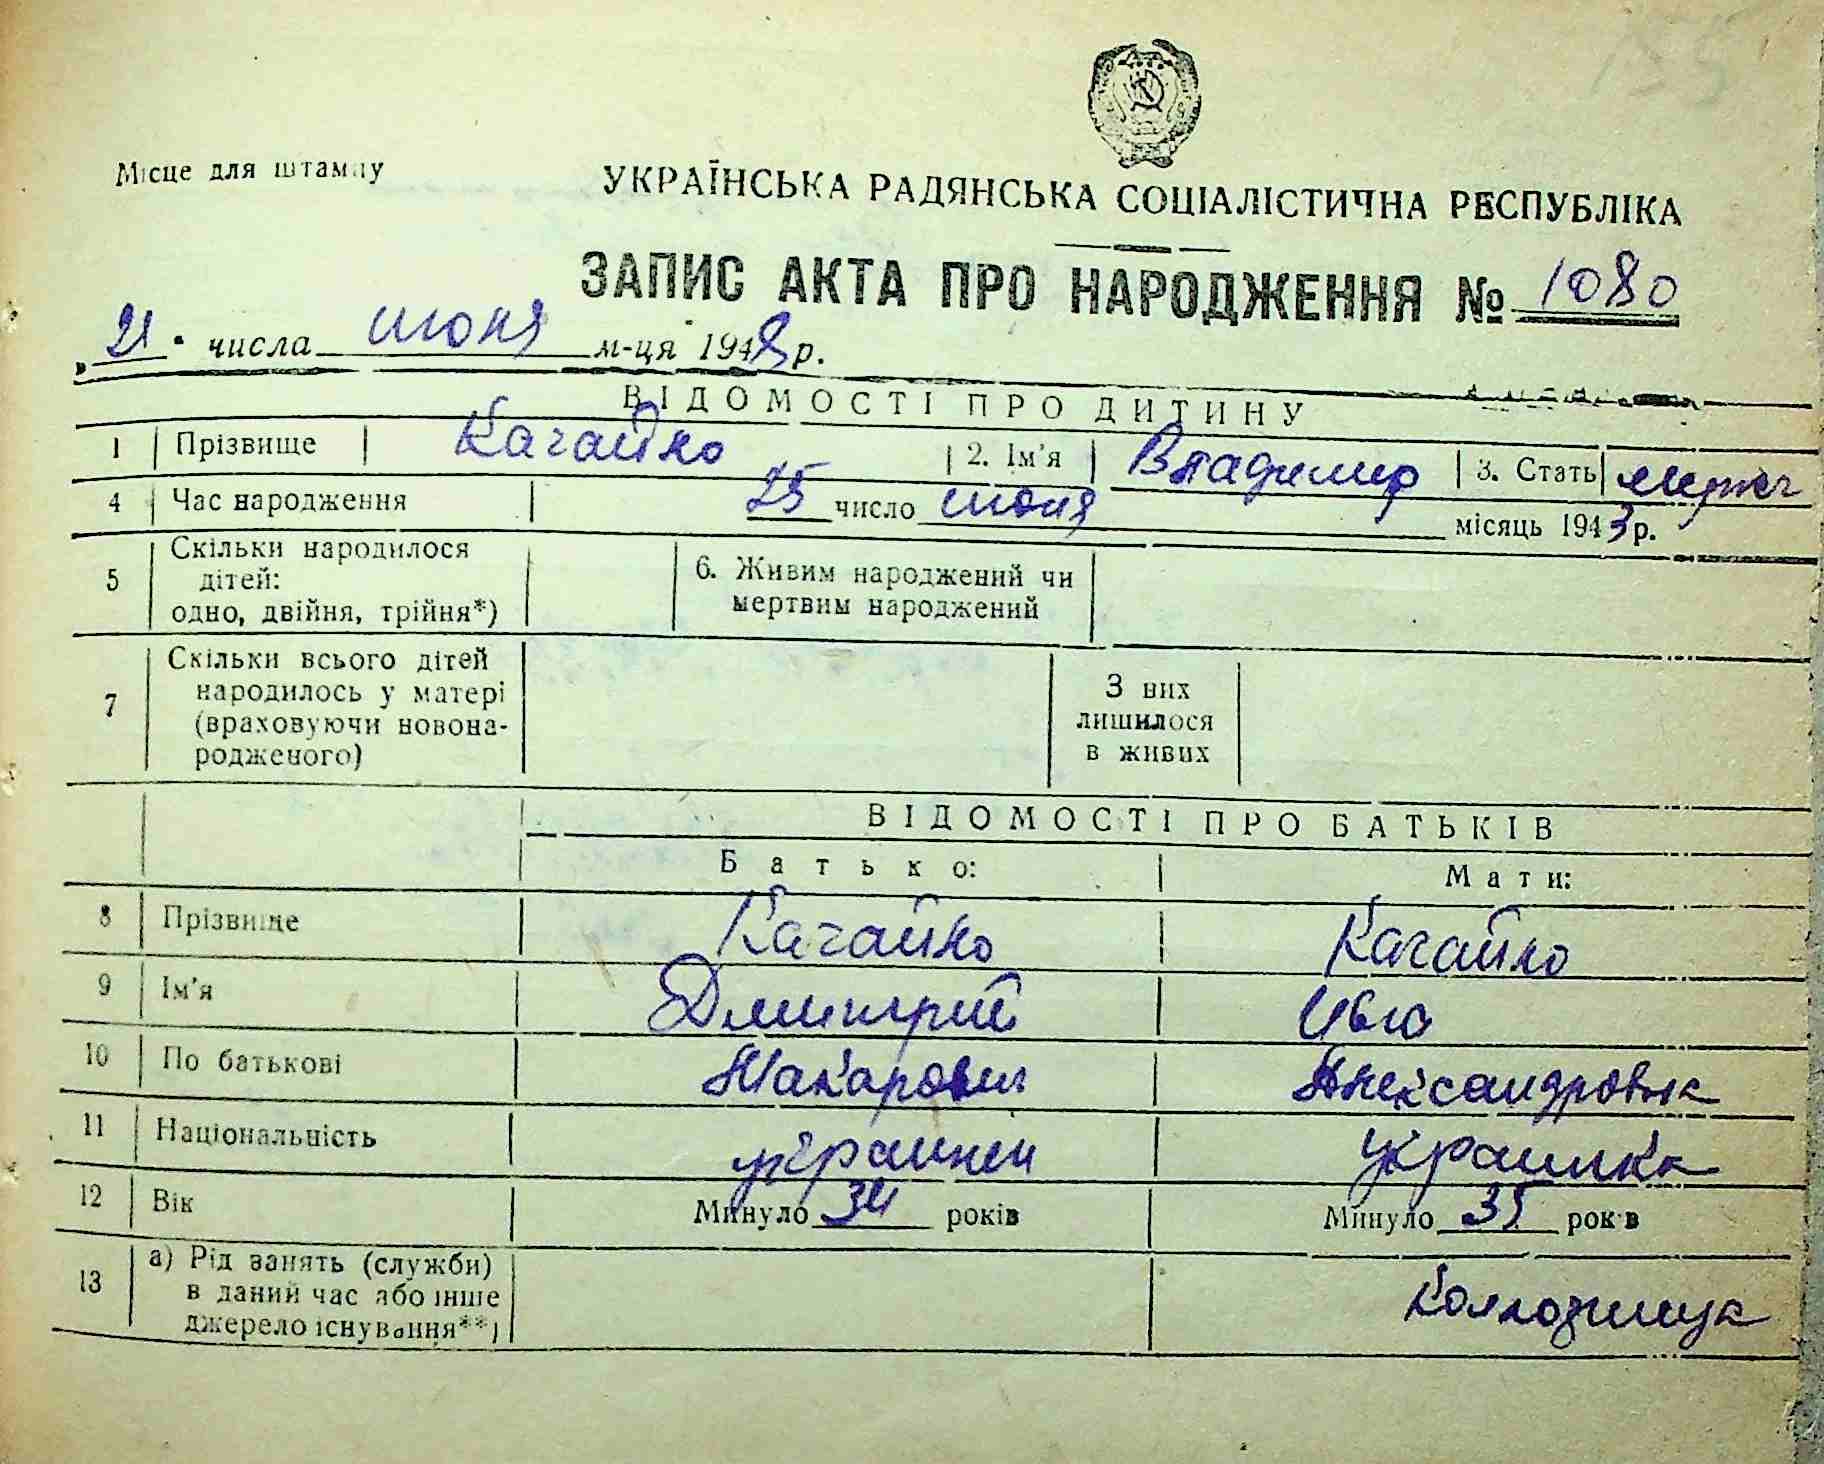 Місце для штампу
УКРАЇНСЬКА РАДЯНСЬКА СОЦІАЛІСТИЧНА РЕСПУБЛІКА
ЗАПИС АКТА ПРО НАРОДЖЕННЯ № 1080
„21" числа июня м-ця 1948 р.
ВІДОМОСТІ ПРО ДИТИНУ
1 Прізвище Качайко 2. Ім'я Владимир 3. Стать
4 Час народження 25 число июня місяць 1943 р.
5 Скільки народилося дітей: одно, двійня, трійня*) 6. Живим народжений чи мертвим народжений
7 Скільки всього дітей народилось у матері (враховуючи новонародженого) З них лишилося в живих
ВІДОМОСТІ ПРО БАТЬКІВ
Батько: Мати:
8 Прізвище Качайко Качайко
9 Ім'я Дмитрий
10 По батькові Макарович Александровна
11 Національність украинец украинка
12 Вік Минуло 34 років Минуло 35 років
13 а) Рід занять (служби) в даний час або інше джерело існування**) Колхозница